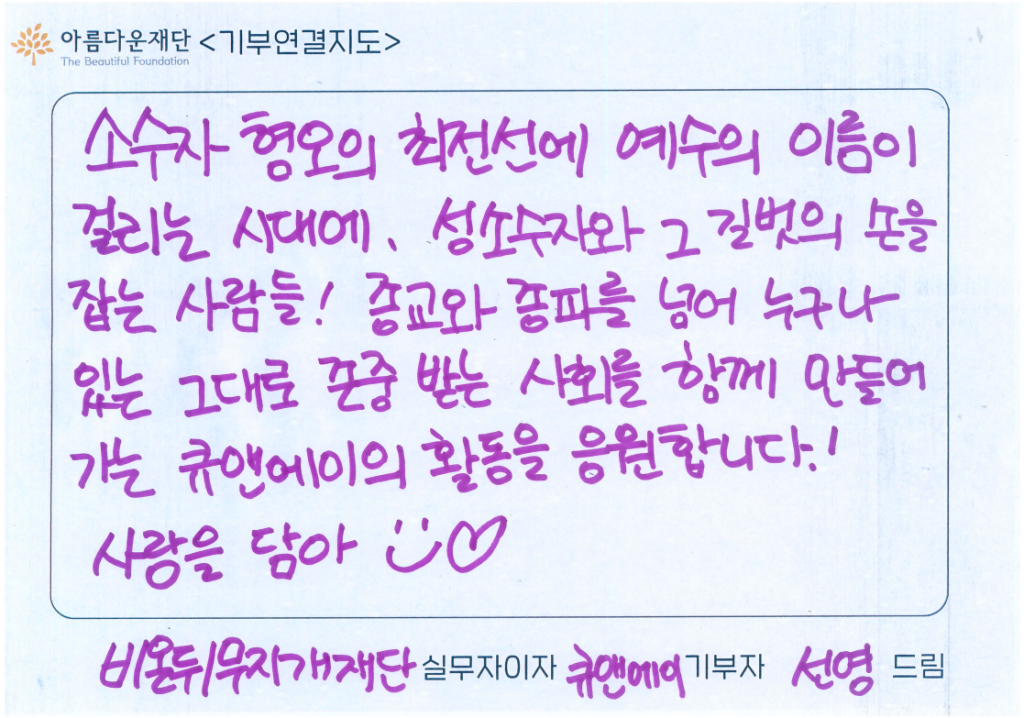 아름다운재단 <기부연결지도>
The Beautiful Foundation
소수자 혐오의 최전선에 예수의 이름이
걸리는 시대에, 성소수자와 그 길벗의 손을
잡는 사람들! 종교와 종파를 넘어 누구나
있는 그대로 존중 받는 사회를 함께 만들어
가는 큐앤에이의 활동을 응원합니다!
사랑을 담아
비온뒤무지개재단 실무자이자 큐앤에이 기부자 선영 드림